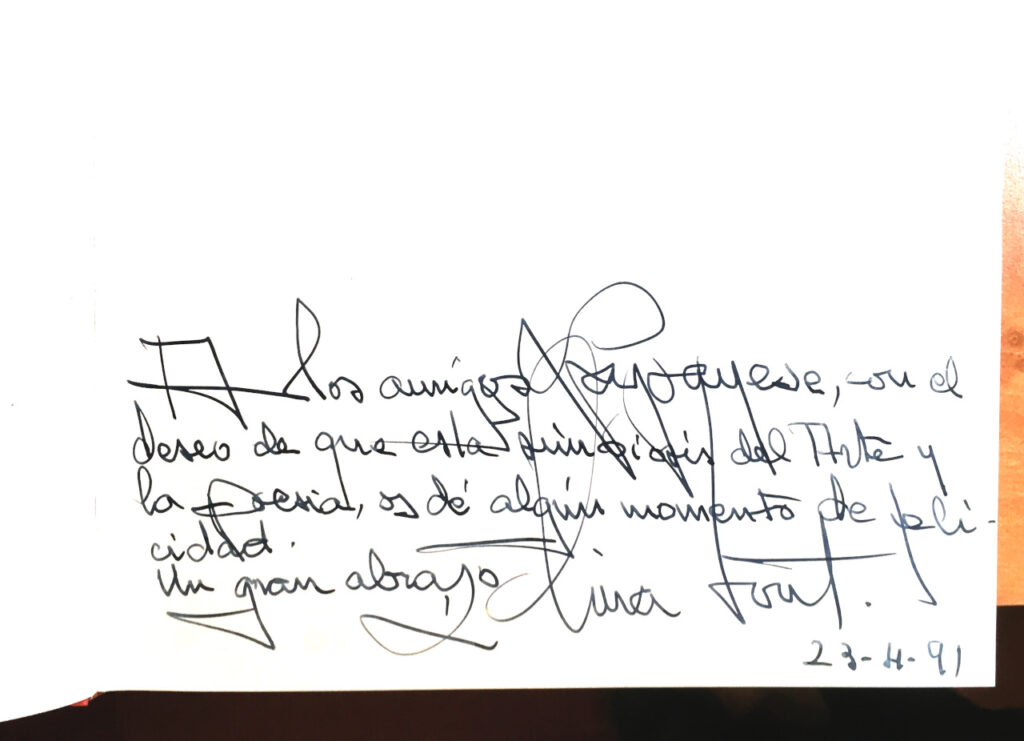 A los amigos con el
deseo de que esta simbiosis del Arte y
la Poesia, os dé algún momento de feli-
cidad.
Un gran abrazo Font.
23-4-91